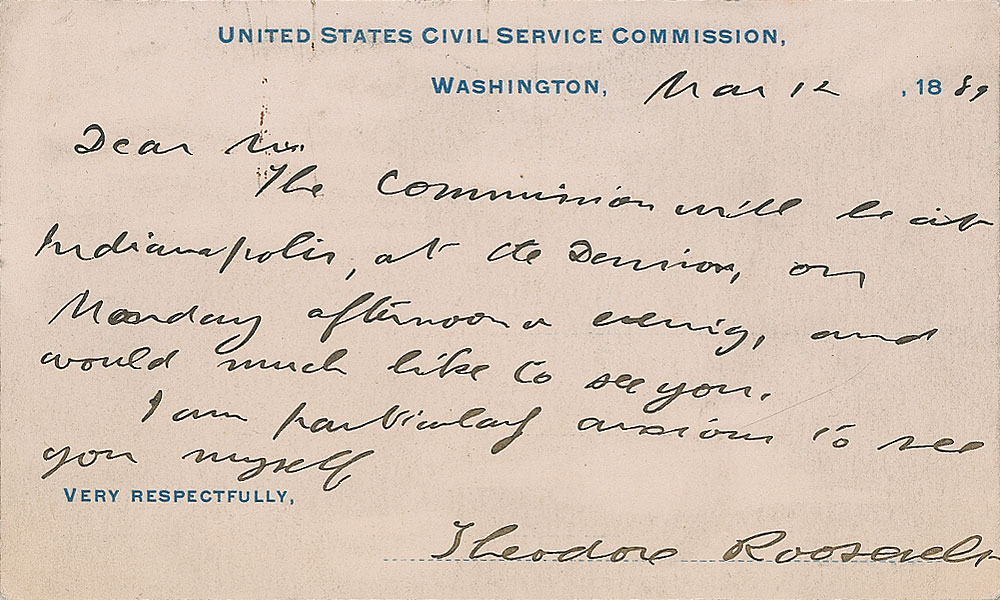 UNITED STATES CIVIL SERVICE COMMISSION,
WASHINGTON, Mar 12, 1889
Dear Sir:
The Commission will be at
Indianapolis, at the Denison, on
Monday afternoon or evening, and
would much like to see you.
I am particularly anxious to see
you myself
VERY RESPECTFULLY,
Theodore Roosevelt